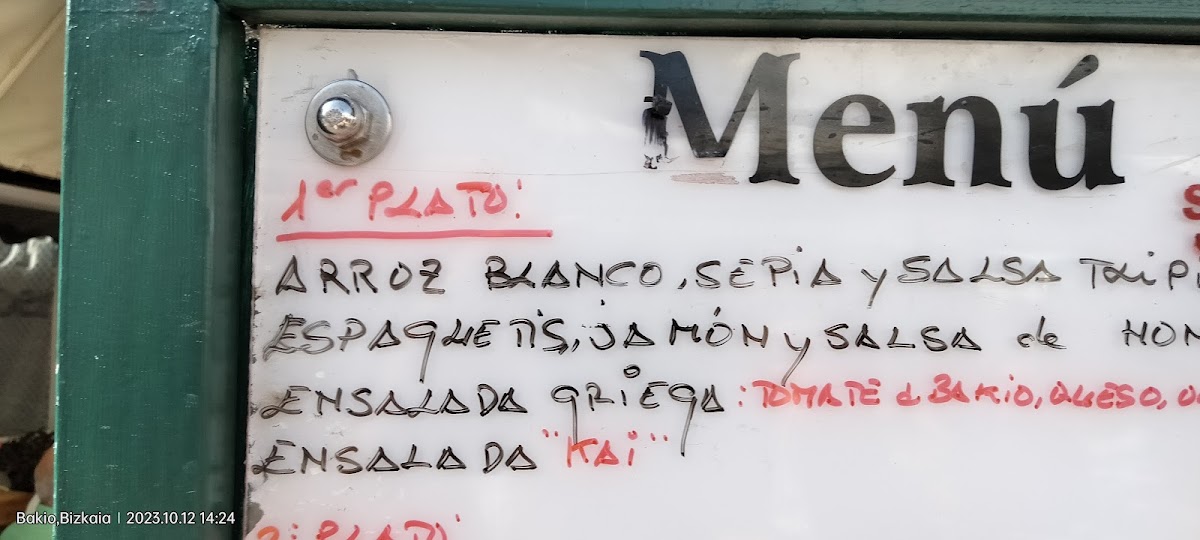 Menú
1er PLATO:
ARROZ BLANCO, SEPiA y SALSA
ESPAQUETiS, JAMÓN y SALSA de
ENSALADA GRiEGA: TOMATE d BAKiO, QUESO,
ENSALADA "KAi"
2º PLATO:
Bakio,Bizkaia | 2023.10.12 14:24